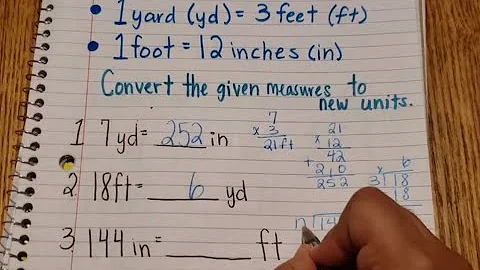 • 1 yard (yd) = 3 feet (ft)
• 1 foot = 12 inches (in)
Convert the given measures to
new units.
1 7yd = 252 in
7
x 3
21ft
21
x 12
42
+ 210
252
2 18ft = 6 yd
x 6
3 18
18
3 144 in = ____ ft
12 14